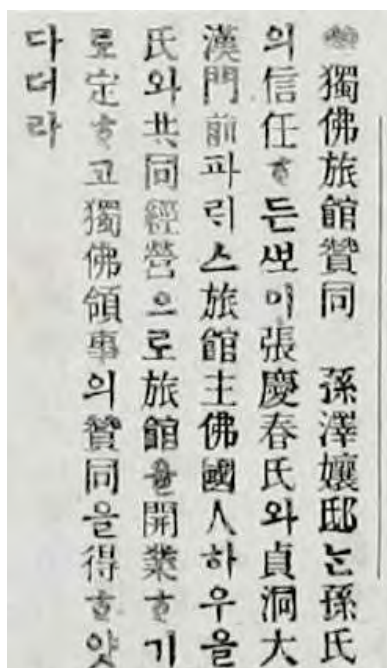 獨佛旅館贊同 孫澤孃邸는孫氏
의信任ᄒᆞ든ᄲᅩ이張慶春氏와貞洞大
漢門前파리스旅館主佛國人하우을
氏와共同經營으로旅館을開業ᄒᆞ기
로定ᄒᆞ고獨佛領事의贊同을得ᄒᆞ얏
다더라